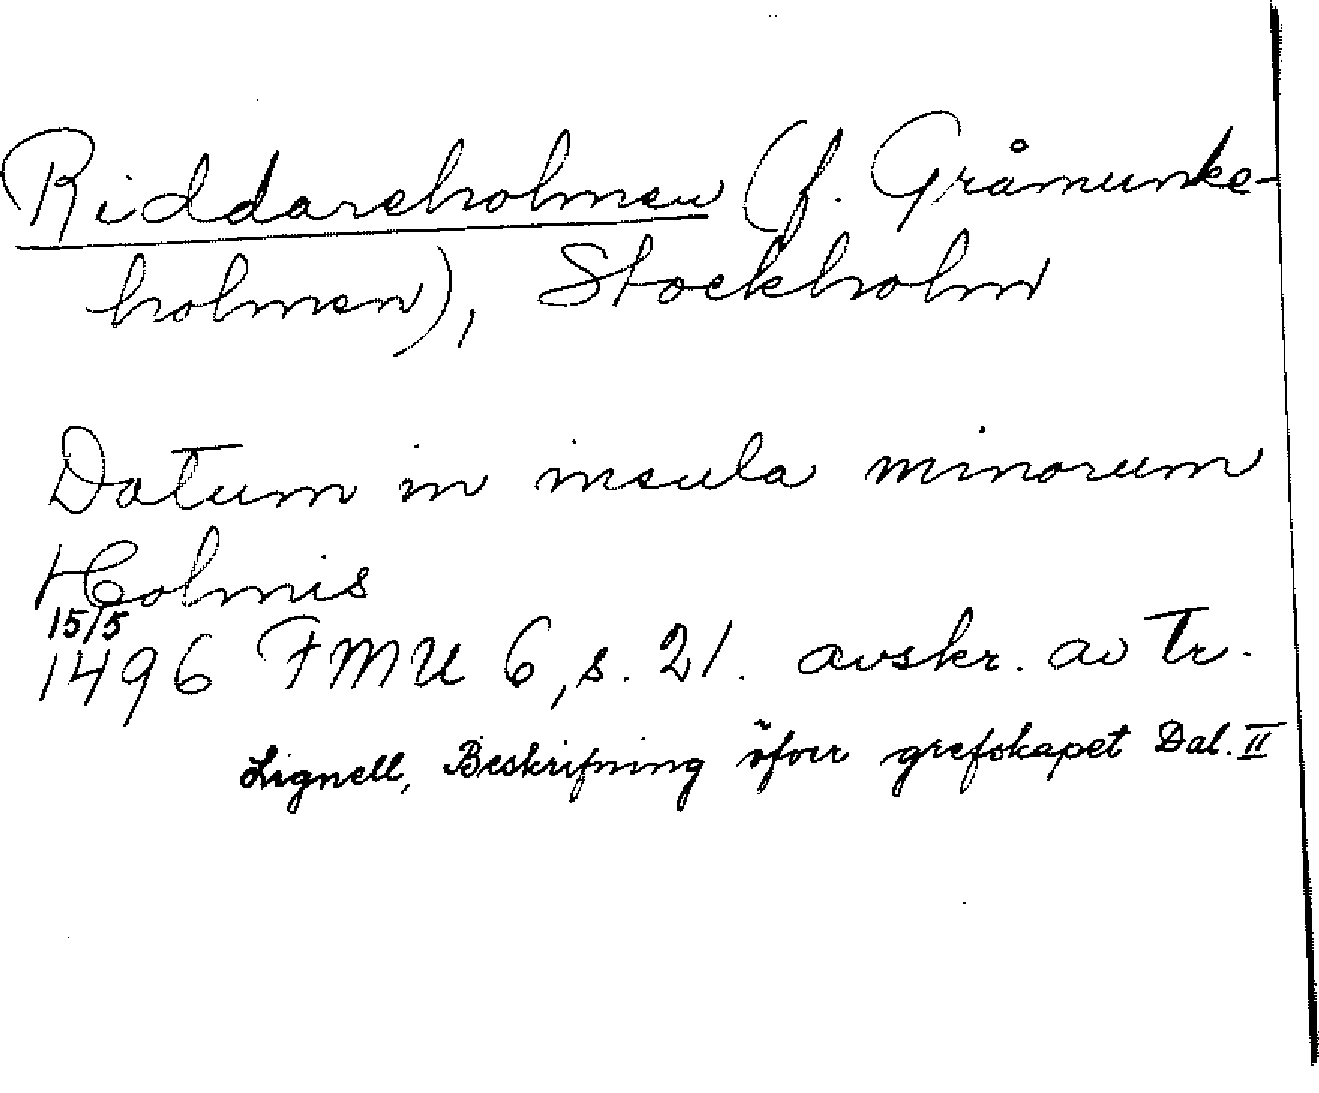 Riddareholmen (f. Gråmunke-
holmen), Stockholm
Datum in insula minorum
Holmis
15/5
1496 FMU 6, s. 21. avskr. av Tr.
Lignell, Beskrifning öfver grefskapet Dal. II